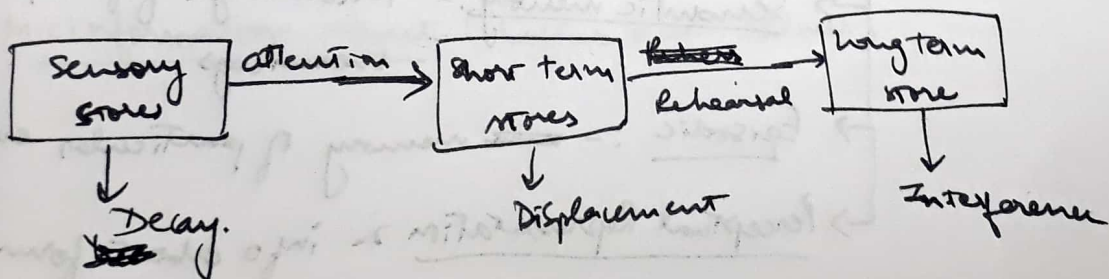 Sensory
stores
attention
Short term
stores
Rehearsal
Long term
store
Decay.
Displacement
Interference